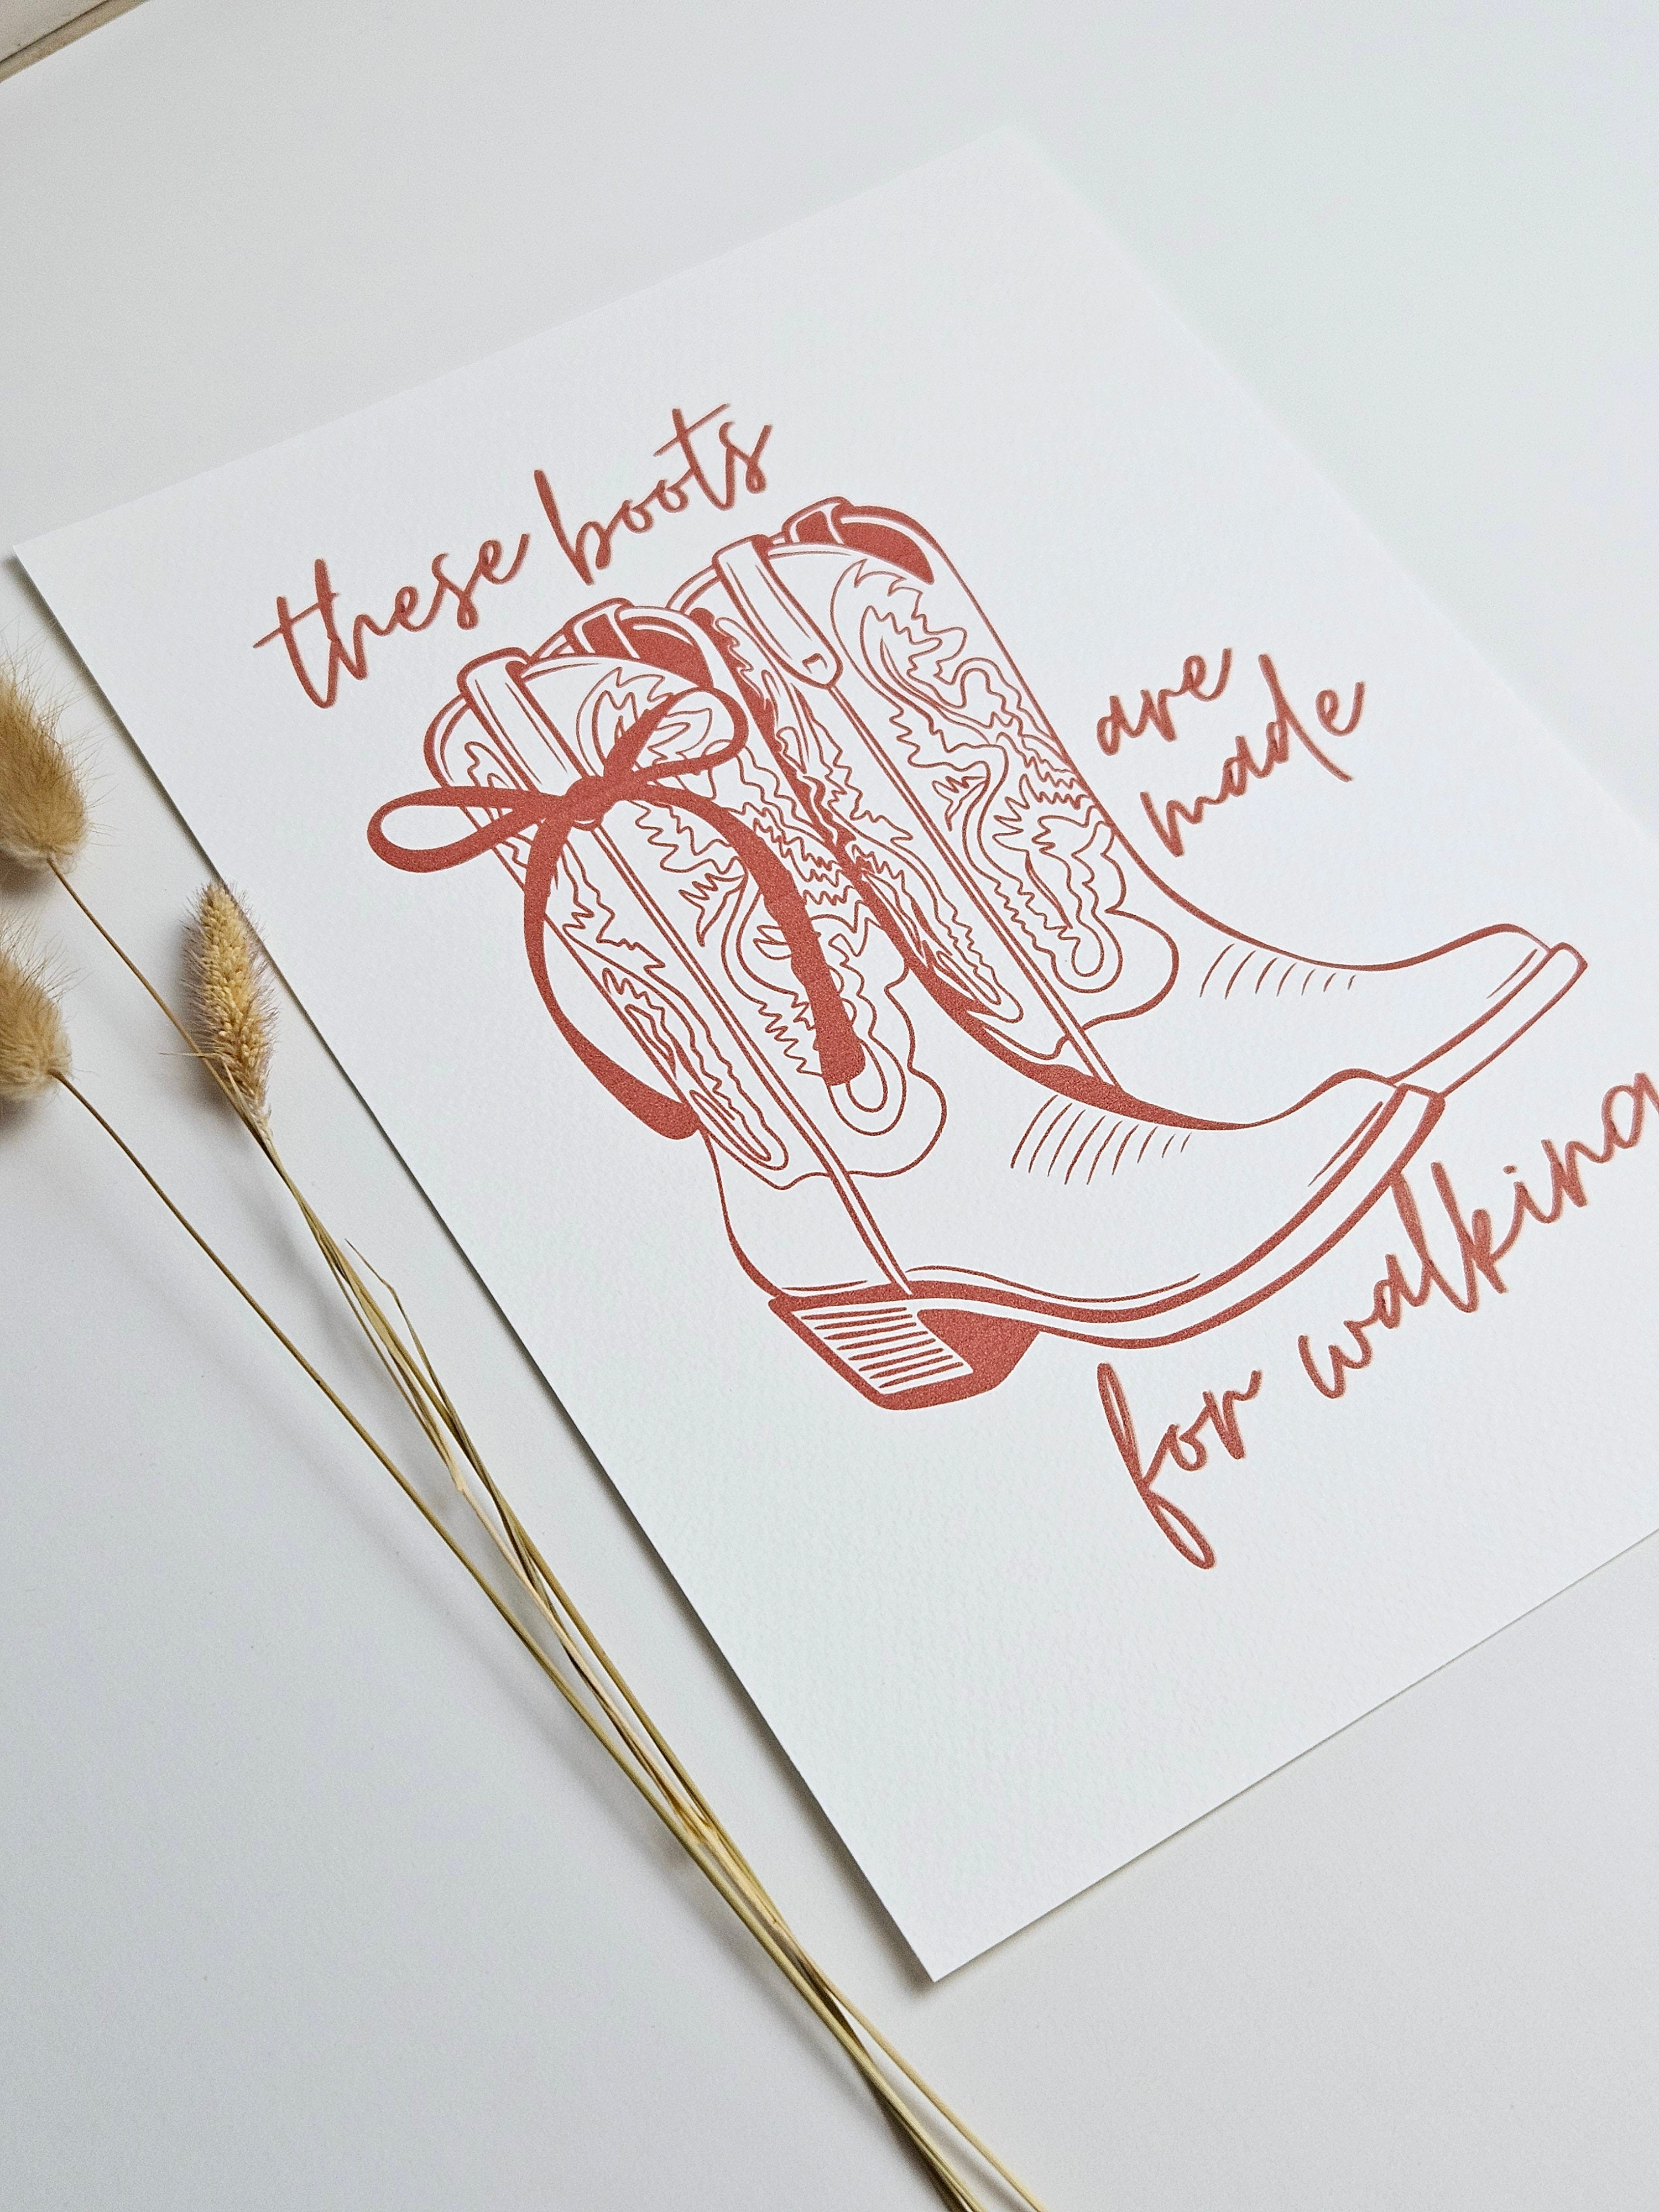 these boots
are
made
for walking